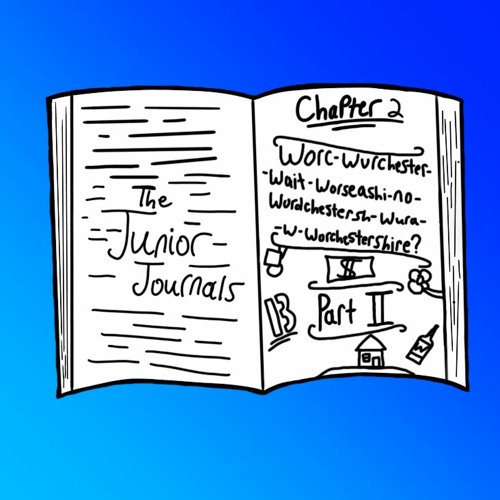 The
Junior
Journals
Chapter 2
Worc-Wurchester-
-Wait-Worseashi-no-
Wurdchestersh-Wura-
-w-Worchestershire?
$
Part II
13
W